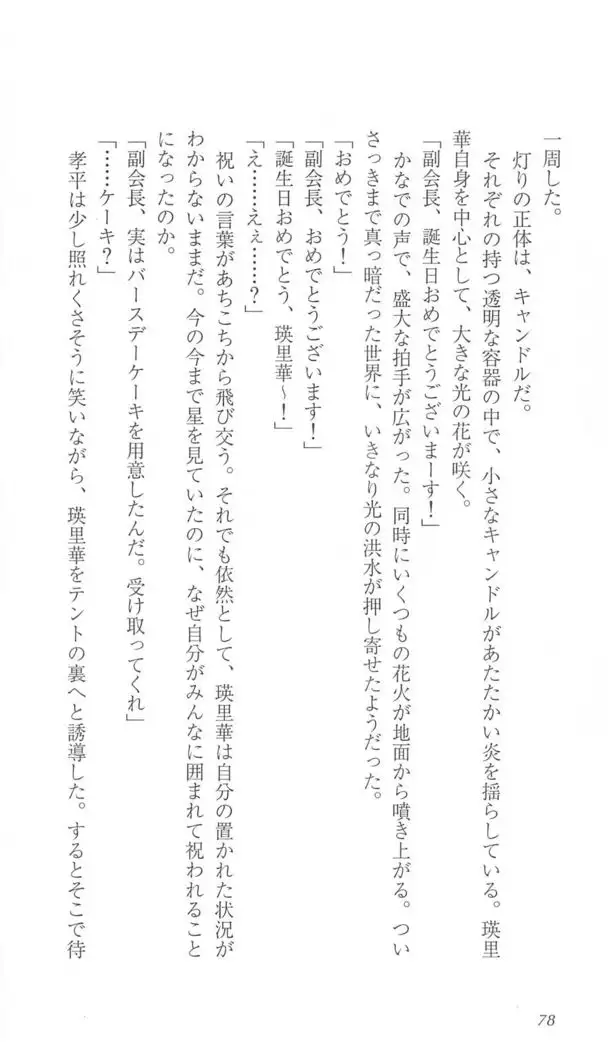 一周した。
　灯りの正体は、キャンドルだ。
　それぞれの持つ透明な容器の中で、小さなキャンドルがあたたかい炎を揺らしている。瑛里
華自身を中心として、大きな光の花が咲く。
「副会長、誕生日おめでとうございまーす！」
　かなでの声で、盛大な拍手が広がった。同時にいくつもの花火が地面から噴き上がる。つい
さっきまで真っ暗だった世界に、いきなり光の洪水が押し寄せたようだった。
「おめでとう！」
「副会長、おめでとうございます！」
「誕生日おめでとう、瑛里華〜！」
「え……えぇ……？」
　祝いの言葉があちこちから飛び交う。それでも依然として、瑛里華は自分の置かれた状況が
わからないままだ。今の今まで星を見ていたのに、なぜ自分がみんなに囲まれて祝われること
になったのか。
「副会長、実はバースデーケーキを用意したんだ。受け取ってくれ」
「……ケーキ？」
　孝平は少し照れくさそうに笑いながら、瑛里華をテントの裏へと誘導した。するとそこで待
78